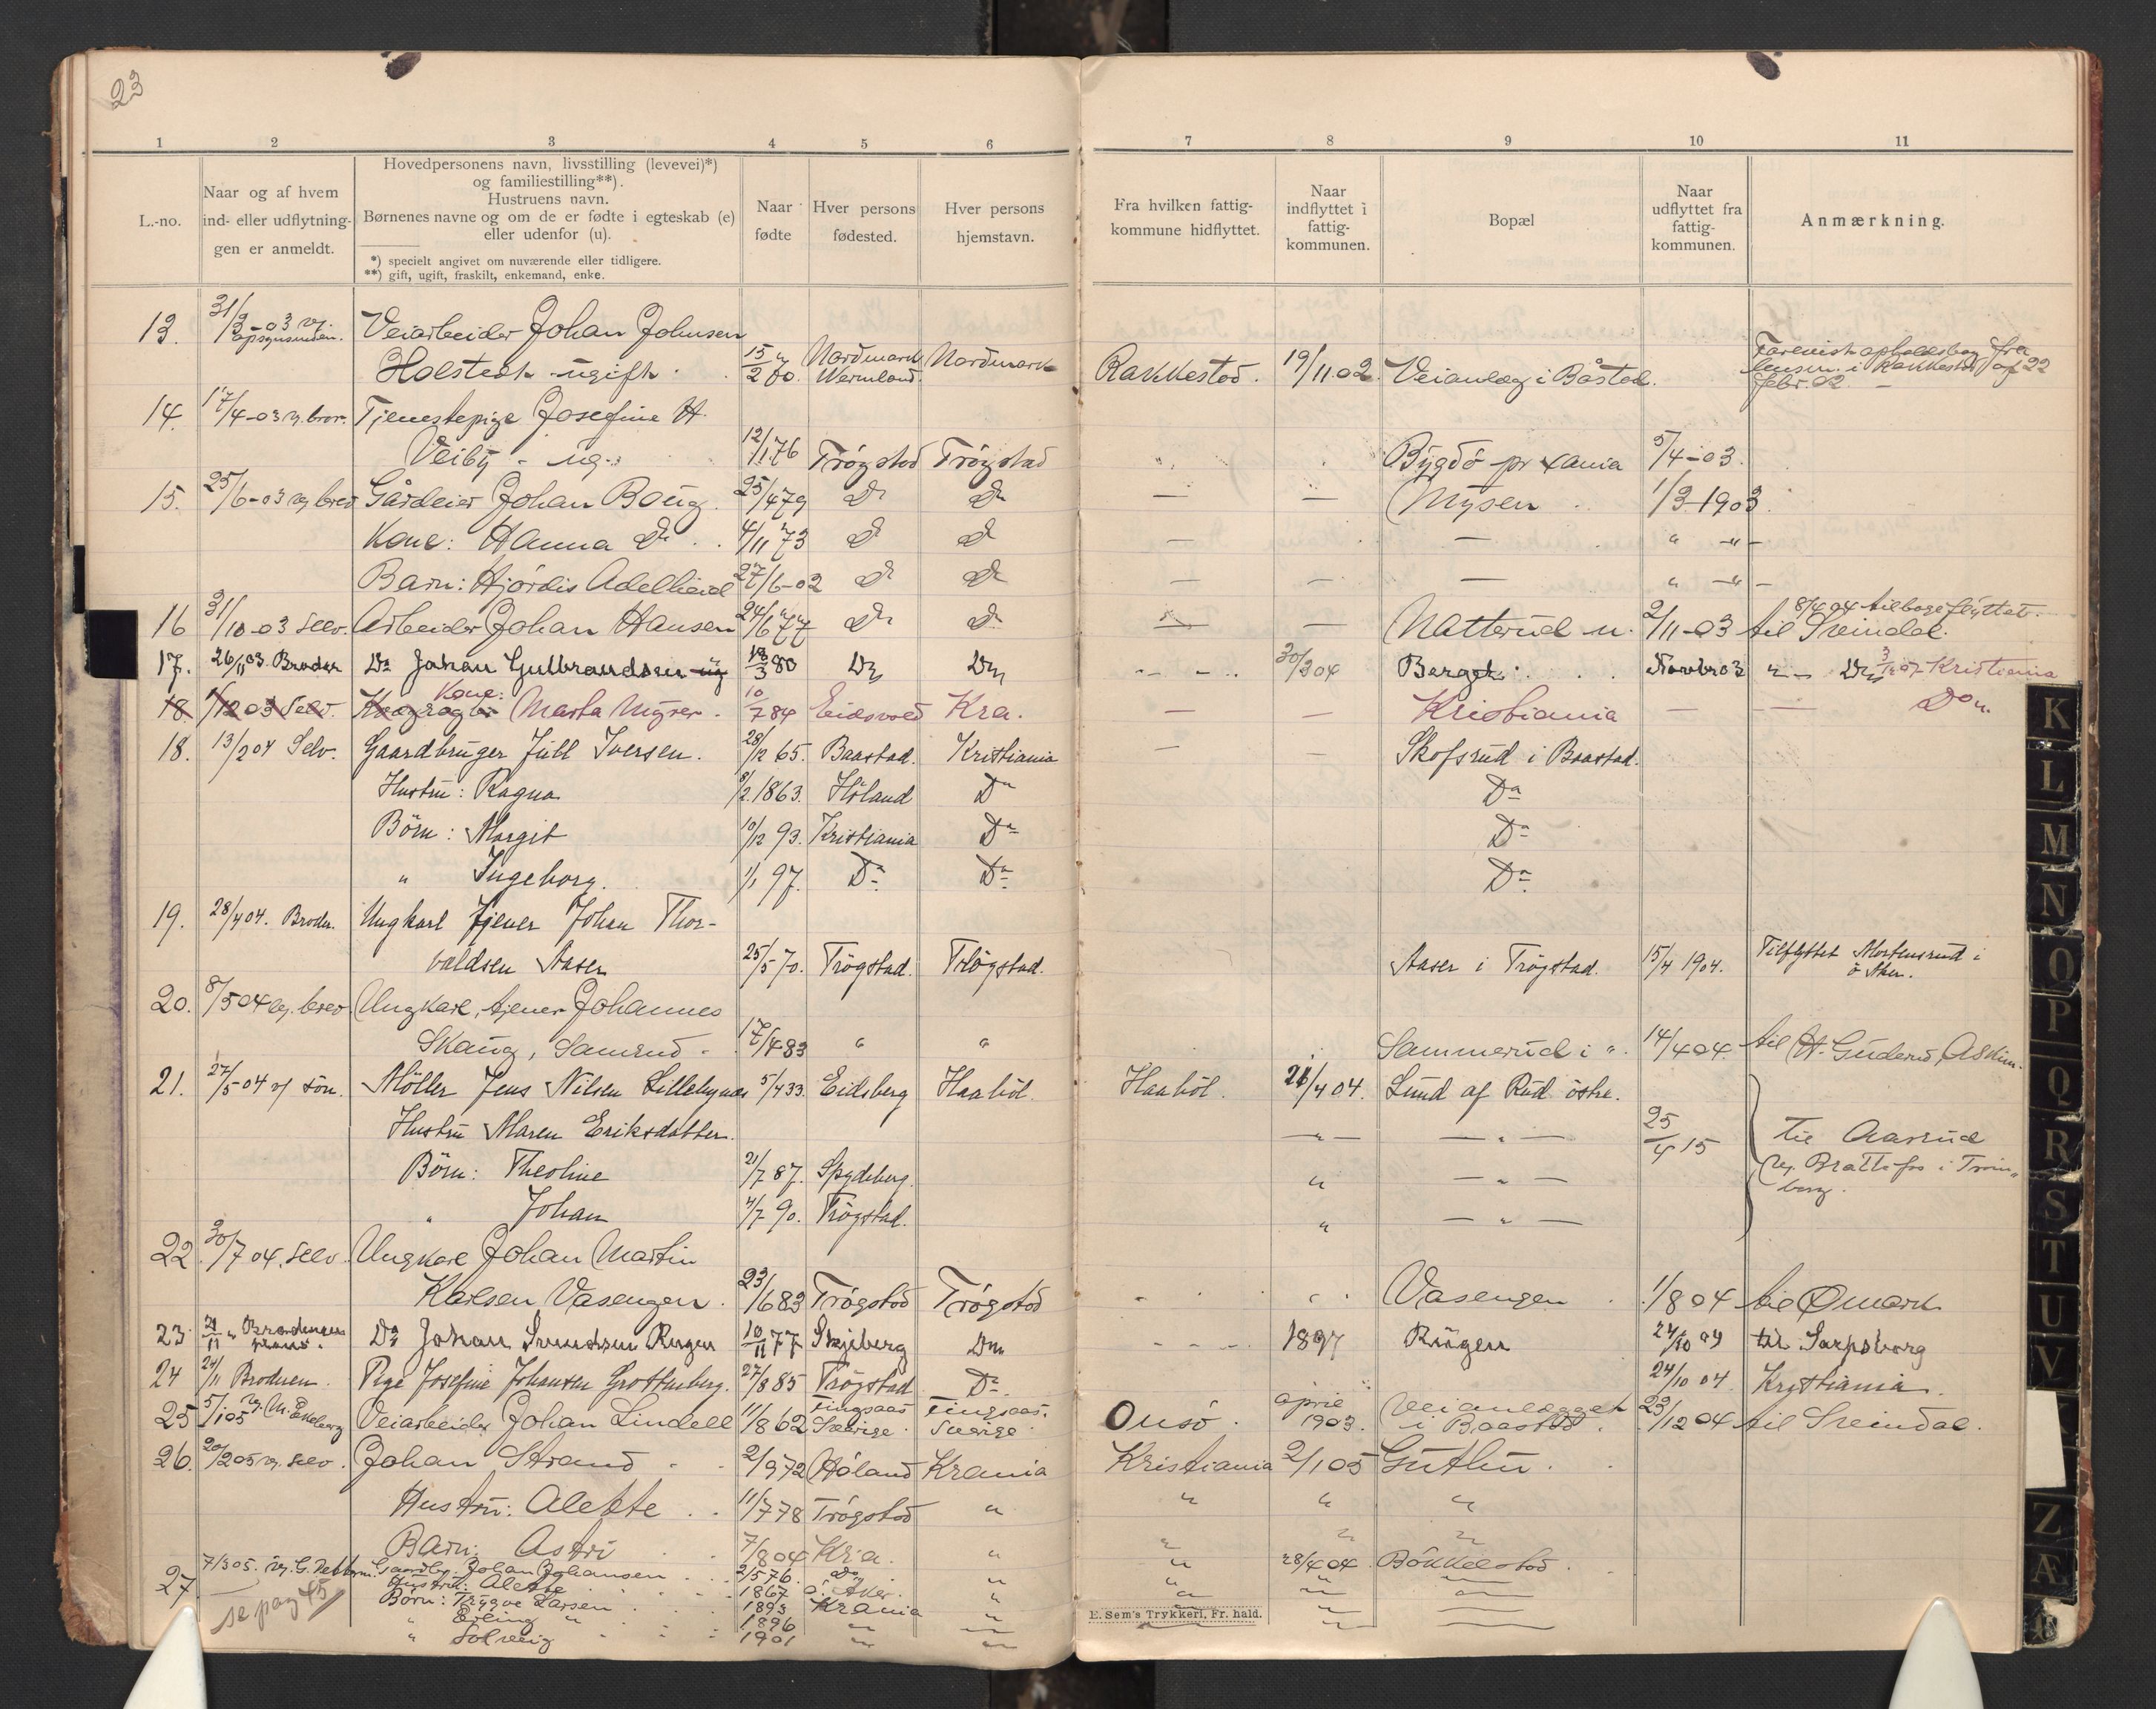 23
1 2 3 4 5 6 7 8 9 10 11
L.-no.
Naar og af hvem
ind- eller udflytnin-
gen er anmeldt.
Hovedpersonens navn, livsstilling (levevei)*)
og familiestilling**).
Hustruens navn.
Børnenes navne og om de er fødte i egteskab (e)
eller udenfor (u).
*) specielt angivet om nuværende eller tidligere.
**) gift, ugift, fraskilt, enkemand, enke.
Naar
fødte
Hver persons
fødested.
Hver persons
hjemstavn.
Fra hvilken fattig-
kommune hidflyttet.
Naar
indflyttet i
fattig-
kommunen.
Bopæl
Naar
udflyttet fra
fattig-
kommunen.
Anmærkning.
13. Veiarbeider Johan Johnsen
Holstedt ugift. 15/2 60. Nordmark Wermland. Nordmark Rakkestad. 19/11 02. Veianlæg i Båstad. febr. 02.
14. 17/4-03 v. bror. Tjenestepige Josefine H.
Veiby - ug. 12/1 76 Trøgstad Trøgstad Bygdö pr xania 5/4-03.
15. 25/6-03 v. brev Gårdeier Johan Boug. 25/4 79 Do Do — — Mysen 1/3-1903.
Kone: Hanna Do 4/11 73 Do Do — — " —"—
Barn: Hjördis Adelheid 27/6-02 Do Do — — — " —"—
16 31/10-03 selv. Arbeider Johan Hansen 24/6 77 Do Do — — Natterud u. 2/11-03 8/4 04 tilbageflyttet.
til Sveindal.
17. 26/11 03. Broder Do Johan Gulbrandsen ug 18/3 80 Do Do 30/3 04 Berget Novbr 03 Kristiania
18 1/12 03 Selv. Kone: Marta Myrer. 10/7 84 Eidsvold Kra. — — Kristiania — — Do
18. 13/2 04 Selv. Gaardbruger Juhl Iversen. 28/12 65. Baastad. Kristiania — — Skofsrud i Baastad.
Hustru: Ragna 8/2 1863. Höland Do Do
Börn: Margit 10/12 93. Kristiania Do Do
" Ingeborg. 1/1 97. Do Do Do
19. 28/4 04. Broder. Ungkarl tjener Johan Thor-
valdsen Aasen 25/5 70. Trögstad. Trögstad. Aaser i Trögstad. 15/4 1904. Tilflyttet Mortensrud i
ö Aker.
20. 8/5 04 v. brev Ungkarl, tjener Johannes
Skaug, Samrud 17/4 83 " " Sammerud i ". 14/4 04 til H. Guderud, Askim.
21. 27/5 04 v/ sön. Möller Jens Nilsen Lillebynæs 5/4 33. Eidsberg Haaböl. Haaböl. 21/4 04. Lund af Rud östre.
Hustru Maren Eriksdatter. —"— —"— 25/4 15 til Aasrud
Börn: Theoline 21/7 87. Spydeberg. " —"— v. Brattefos i Tröm-
borg.
" Johan 4/7 90. Trögstad. " —"—
22. 30/7 04. selv. Ungkarl Johan Martin
Karlsen Vasengen. 23/6 83 Trøgstad Trøgstad Vasengen 1/8 04 til Ømark
23 Do Johan Svendsen Rugen 10/11 77 Skjeberg Do 1897 Rügen 24/10 04 til Sarpsborg
24 24/11 Broderen Pige Josefine Johansen Grottenberg. 27/8 85 Trögstad Do 24/10 04 Kristiania.
25 5/1 05 v. M. Ekeberg Veiarbeider Johan Lindell 11/8 62 Tingsaas Sverige Tingsaas. Sverige Onsö. april 1903. Veianlægget i Baastad. 23/12 04 til Sveindal.
26. 20/2 05 v. selv. Johan Strand 2/9 72 Høland Krania Kristiania 2/1 05 Guthu.
Hustru: Alette 11/7 78 Trögstad " " " "
Barn: Astri 7/8 04 Kria. " " " "
27 7/3 05. Gaardbr. Johan Johansen 2/5 76. Do " " 28/4 04 Bökkelstad.
Hustru: Alette 1867 ö. Aker. " " "
Börn: Trygve Larsen 1893 Krania " " "
" Erling " 1896 " "
" Solveig 1901 " "
se pag 45
E. Sem's Trykkeri, Fr. hald.
K
L
M
N
O
P
Q
R
S
T
U
V
Z
Æ